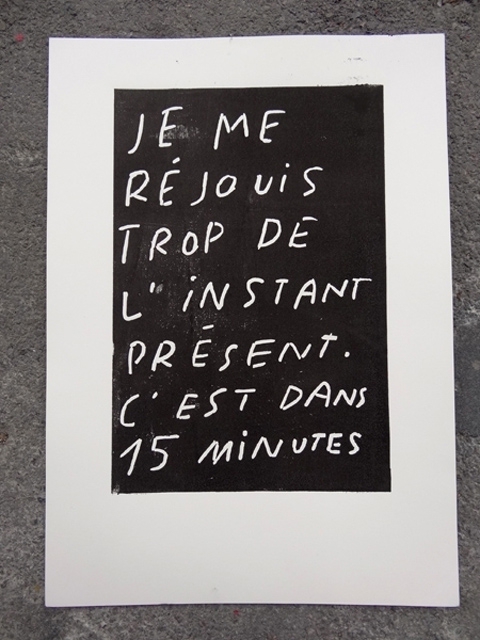 JE ME
RÉJOUiS
TROP DE
L" iNSTANT
PRÉSENT.
C'EST DANS
15 MiNUTES